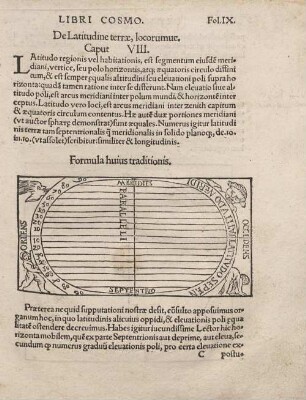 LIBRI COSMO. Fol.IX.
De Latitudine terræ, locorumue.
Caput VIII.
LAtitudo regionis vel habitationis, est segmentum eiusdē meri/
diani, vertice, seu polo horizontis, atq; æquatoris circulo distin
ctum, & est semper equalis altitudini seu eleuationi poli supra ho
rizonta: quāq̄ tamen ratione inter se differunt. Nam eleuatio siue al
titudo poli, est arcus meridiani inter polum mundi, & horizontē inter
ceptus. Latitudo vero loci, est arcus meridiani inter zenith capitum
& æquatoris circulum contentus. Hæ autē duæ portiones meridiani
(vt auctor sphæræ demonstrat) sunt æquales. Numerus igitur latitudi
nis terræ tam septentrionalis q̄ meridionalis in solido planoq;, de.10.
in.10. (vt assolet) scribitur: similiter & longitudinis.
Formula huius traditionis.
MERIDIES
PARALLELI
ORIENS
OCCIDENS
SEPTENTRIO
Præterea ne quid supputationi nostræ desit, cōsulto apposuimus or
ganum hoc, in quo latitudinis alicuius oppidi, & eleuationis poli equa
litatē ostendere decreuimus. Habes igitur iucundissime Lector hic ho
rizonta mobilem, quē ex parte Septentrionis aut deprime, aut eleua, se
cundum q̄ numerus graduū eleuationis poli, pro certa eleuatione ex/
C postu/